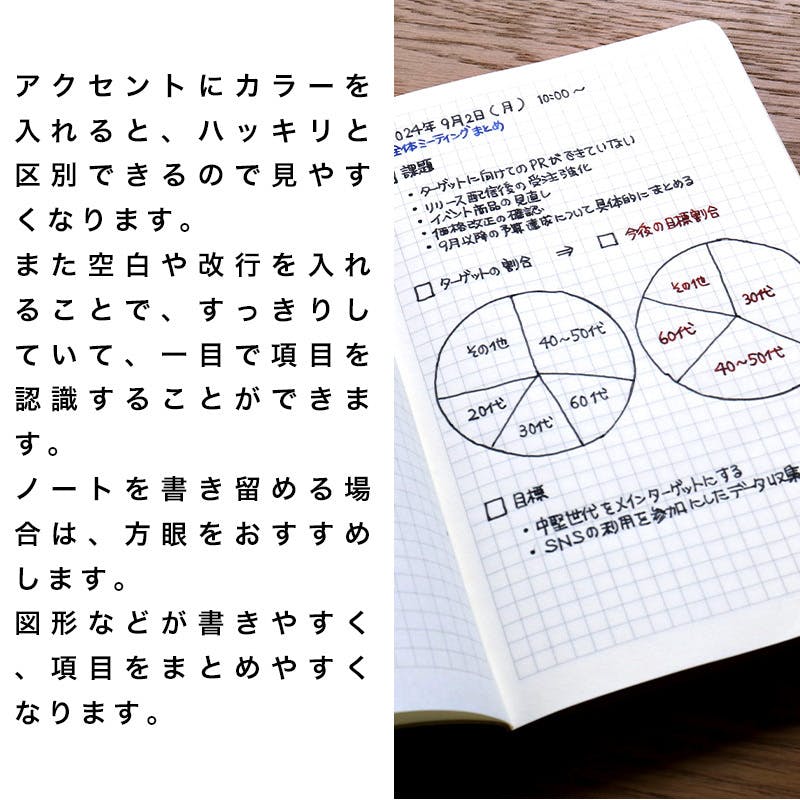 アクセントにカラーを
入れると、ハッキリと
区別できるので見やす
くなります。
また空白や改行を入れ
ることで、すっきりし
ていて、一目で項目を
認識することができま
す。
ノートを書き留める場
合は、方眼をおすすめ
します。
図形などが書きやすく
、項目をまとめやすく
なります。
024年 9月2日(月) 10:00〜
全体ミーティングまとめ
課題
・ターゲットに向けてのPRができていない
・リリース配信後の受注強化
・イベント商品の見直し
・価格改正の確認
・9月以降の予算達成について具体的にまとめる
□ ターゲットの割合 ⇒ □ 今後の目標割合
その他
40〜50代
20代
30代
60代
その他
30代
60代
40〜50代
□ 目標
・中堅世代をメインターゲットにする
・SNSの利用を参加にしたデータ収集